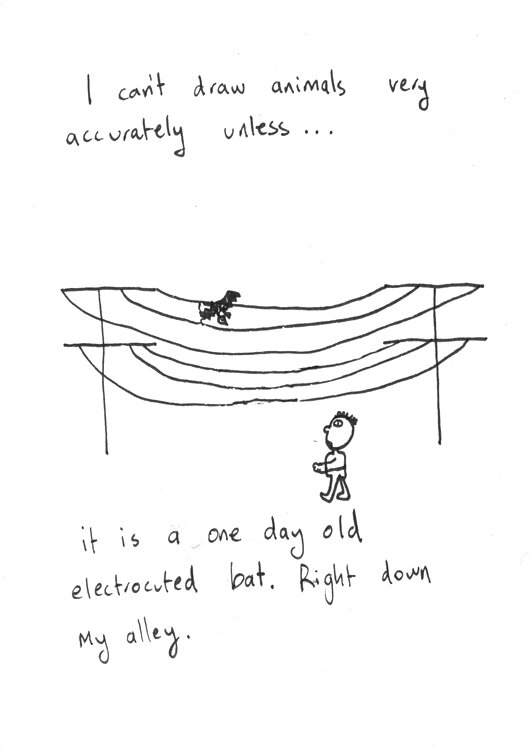 I can't draw animals very
accurately unless...
it is a one day old
electrocuted bat. Right down
My alley.